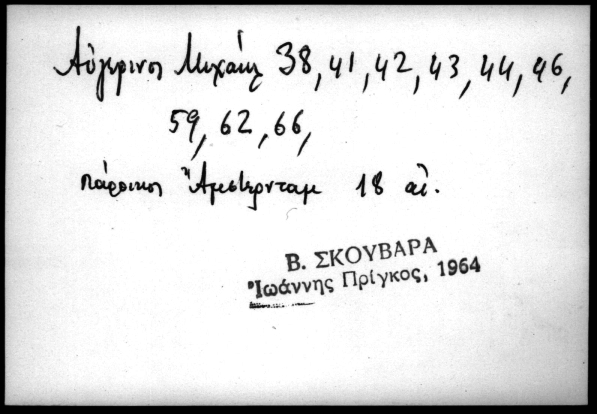 Αὐγερινος Μιχαήλ 38, 41, 42, 43, 44, 46,
59, 62, 66,
πάροικος Ἀμστερνταμ 18 αἰ.
Β. ΣΚΟΥΒΑΡΑ
Ἰωάννης Πρίγκος, 1964